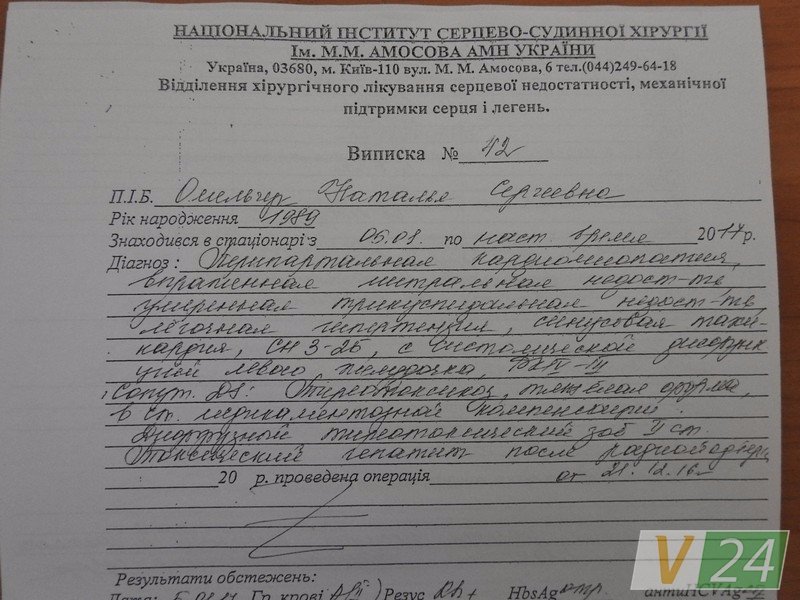 НАЦІОНАЛЬНИЙ ІНСТИТУТ СЕРЦЕВО-СУДИННОЇ ХІРУРГІЇ
Ім. М.М. АМОСОВА АМН УКРАЇНИ
Україна, 03680, м. Київ-110 вул. М. М. Амосова, 6 тел.(044)249-64-18
Відділення хірургічного лікування серцевої недостатності, механічної
підтримки серця і легень.
Виписка № 42
П.І.Б. Наталья Сергеевна
Рік народження 1989
Знаходився в стаціонарі з 05.01. по наст время 2017р.
Діагноз: Перипартальная кардиомиопатия,
выраженная митральная недост-ть
умеренная трикуспидальная недост-ть,
легочная гипертензия, синусовая тахи-
кардия, СН 3-2Б, с систолической дисфунк
цией левого желудочка,
Сопут. DS: Тиреотоксикоз, тяжелая форма,
в ст. медикаментозной компенсации.
Диффузный тиреотоксический зоб II ст.
Токсический гепатит после
20 р. проведена операція от 21.12.16г
Результати обстежень:
Дата: Гр. крові Резус HbsAg антиHCVAg
V24